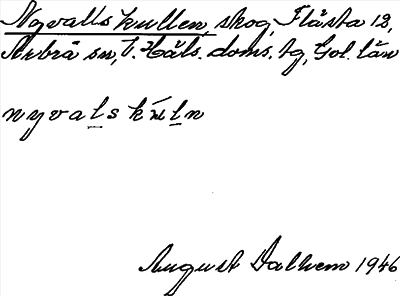 Nyvallskullen, skog, Flästa 12,
Arbrå sn, V. Häls. doms. tg, Gvl. län
nyvalskúln
August Dalhem 1946